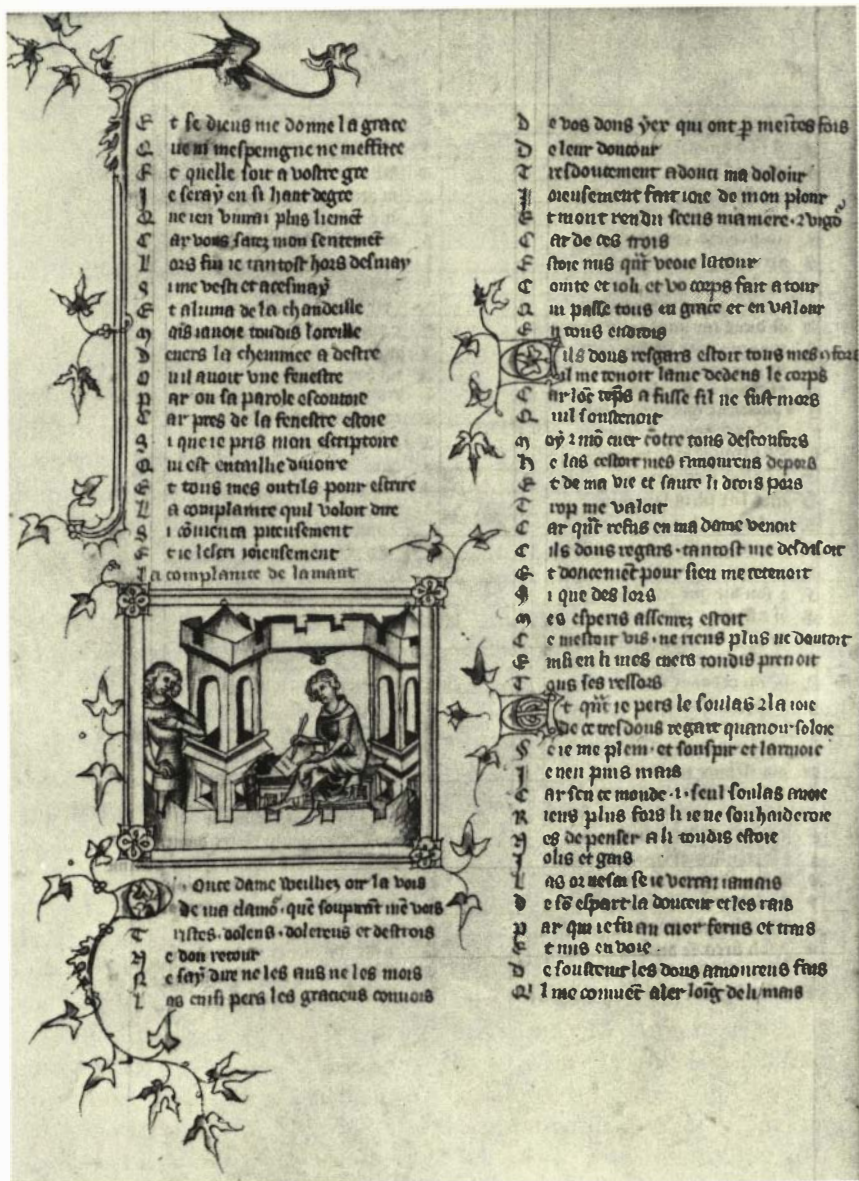 E t se dieus me donne la grace
Q ue m mespeingne ne mefface
E t quelle soit a vostre gre
J e seray en si haut degre
Q ue ien viurai plus liemēt
C ar vous sauez mon sentemēt
L ors fui ie tantost hors desmay
S i me vesti et acesmay
E t aluma de la chandeille
M ais iauoie toudis loreille
D euers la cheminee a destre
O u il auoit vne fenestre
P ar ou sa parole escoutoie
C ar pres de la fenestre estoie
S i que ie pris mon escriptoire
Q ui est entaillie diuoire
E t tous mes outils pour escrire
L a complainte quil voloit dire
S i cōmenca piteusement
E t ie lescri ioieusement
La complainte de lamant
D ouce dame weilliez oir la vois
De ma clamō· que soupirāt mē vois
T ristes·dolens·dolereus et destrois
N e don retour
N e say dire ne les ans ne les mois
L as ensi pers les gracieus conuois
D e vos dons ÿex qui ont p̄ meītes fois
D e leur doucour
T resdoucement adouci ma dolour
J oieusement fait ioie de mon plour
E t mont rendu sceus maniere·⁊ vigō
C ar de ces trois
E stoie nus qn̄t veoie latour
C ointe et ioli et vo corps fait a tour
Q ui passe tous en grace et en valour
E n tous endrois
C ils dous resgars estoit tous mes
Cil me tenoit lame dedens le corps
C ar lōc tēps a fusse sil ne fust mors
Q uil soustenoit
M oÿ ⁊ mō cuer cōtre tous desconfors
H e las cestoit mes amoureus depors
E t de ma vie et saute li drois pors
T rop me valoit
C ar qn̄t refus en ma dame venoit
C ils dous regars·tantost me desdisoit
E t doucemēt pour sien me retenoit
S i que des lors
M es esperis assenrez estoit
C e mestoit vis·ne riens plus ne doutoit
E insi en li mes cuers toudis prenoit
T ous ses ressors
E t qn̄t ie pers le soulas ⁊ la ioie
De ce tresdous regart quauoir soloie
S e ie me plein·et souspir et larmoie
J e nen puis mais
C ar sen ce monde·i·seul soulas auoie
R iens plus fors li ie ne souhaideroie
N es de penser a li toudis estoie
J olis et gais
L as or ne sai se ie verrai iamais
D e sō espart la douceur et les rais
P ar qui ie fu au cuer ferus et trais
E t mis en voie·
D e soustenir les dous amoureus fais
Q' l me conuiēt aler loīg de li mais